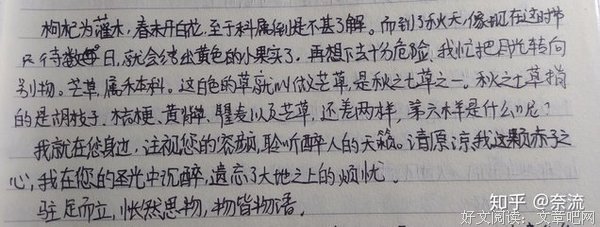 枸杞为灌木，春末开白花，至于科属倒是不甚了解。而到了秋天，像现在这时节
只待数日，就会结出黄色的小果实了，再想下去十分危险，我忙把目光转向
别物。芒草，属禾本科。这白色的草就叫做芒草，是秋之七草之一。秋之七草指
的是胡枝子、桔梗、黄、瞿麦以及芒草，还差两样，第六样是什么呢？
我就在您身边，注视您的容颜，聆听醉人的天籁。请原谅我这颗赤子之
心，我在您的圣光中沉醉，遗忘了大地之上的烦忧。
驻足而立，怅然思物，物皆物语。
知乎 @奈流
好文阅读：文章吧网